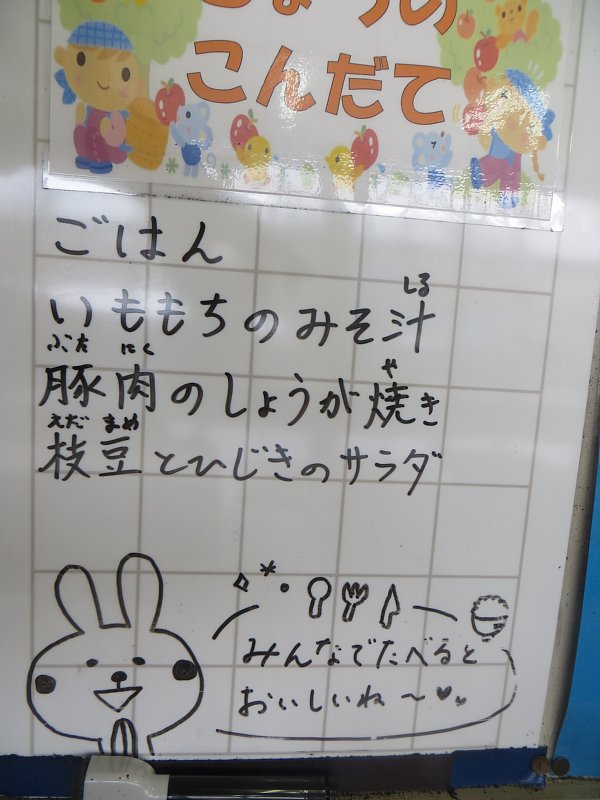 きょうの
こんだて
ごはん
いももちのみそ汁
しる
豚肉のしょうが焼き
ぶた にく や
枝豆とひじきのサラダ
えだ まめ
みんなでたべると
おいしいね～